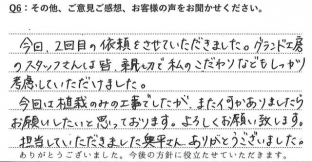 Q6：その他、ご意見ご感想、お客様の声をお聞かせください。
今回、2回目の依頼をさせていただきました。グランド工房
のスタッフさんは皆、親切で私のこだわりなどもしっかり
考慮していただけました。
今回は植栽のみの工事でしたが、また何かありましたら
お願いしたいと思っております。よろしくお願い致します。
担当していただきました奥平さん、ありがとうございました。
ありがとうございました。今後の方針に役立たせていただきます。